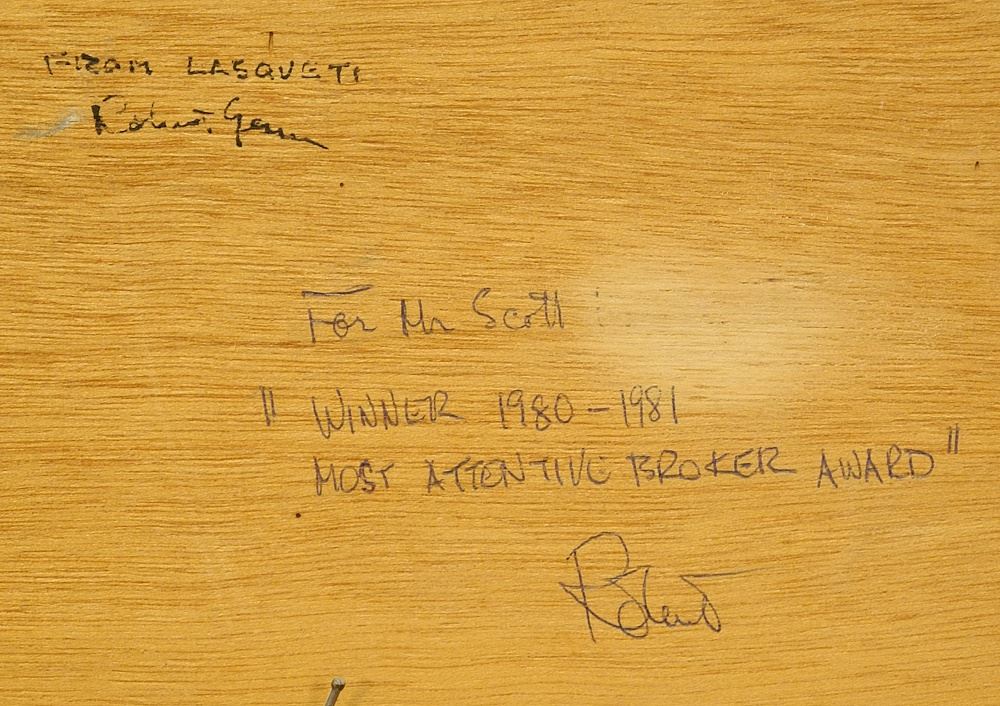 FROM LASQUETI
Robert Genn
For Mr Scott
" WINNER 1980-1981
MOST ATTENTIVE BROKER AWARD "
Robert